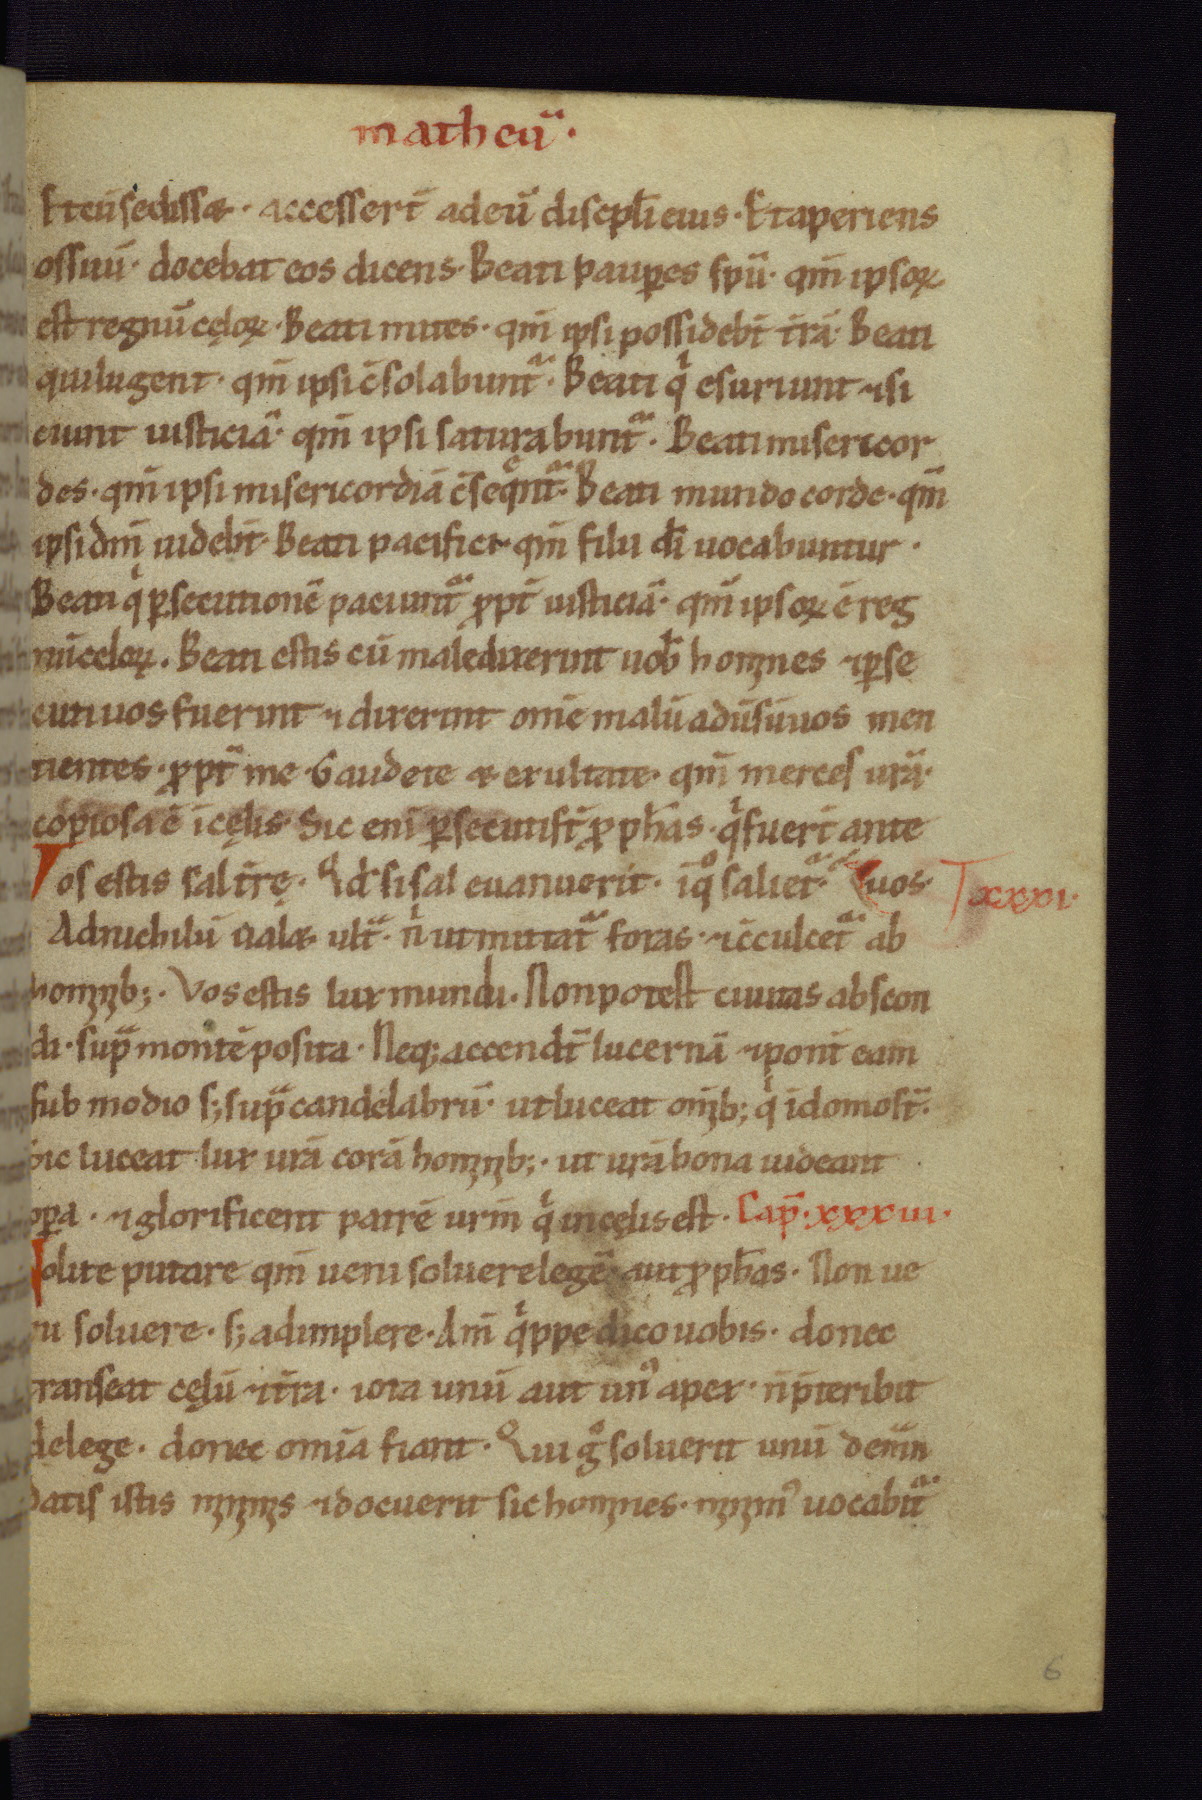 matheū·
Et cū sedissæ · accesserī ad eū discipl̄i eius · Et aperiens
os suū · docebat eos dicens · Beati paup̄es sp̄u · qm̄ ipsoꝝ
est regnū cęloꝝ · Beati mites · qm̄ ipsi possidebt̄ t̄rā · Beati
qui lugent · qm̄ ipsi c̄solabunt᷑ · Beati qͥ esuriunt ⁊ si
ciunt iusticiā · qm̄ ipsi saturabunt᷑ · Beati misericor
des · qm̄ ipsi misericordiā c̄seq̄nt᷑ · Beati mundo corde · qm̄
ipsi dm̄ uidebt̄ · Beati pacifici · qm̄ filii dī uocabuntur ·
Beati qͥ ꝑsecutionē paciunt᷑ ꝓpt̄ iusticiā · qm̄ ipsoꝝ ē reg
nū celoꝝ · Beati estis cū maledixerint uob̄ homines ⁊ ꝑse
cuti uos fuerint ⁊ dixerint om̄e malū adūsū uos men
tientes · ꝓpt̄ me · Gaudete & exultate · qm̄ merces ur̄a ·
copiosa ē ī cęlis · Sic eni ꝑsecuti st̄ ꝓph̄as · qͥ fuert̄ ante
Vos estis sal t̄rę · Qd̄ si sal euanuerit · ī qͦ saliet᷑ · uos ·
xxxi ·
Ad nichilū ualæ ult᷑ · nͥ ut mittat᷑ foras · ⁊ c̄culcet᷑ ab
hominib; · Vos estis lux mundi · Non potest ciuitas abscon
di · sup̄ montē posita · Neq; accendt̄ lucernā ⁊ pont̄ eam
sub modio s; sup̄ candelabrū · ut luceat om̄ib; qͥ ī domo st̄ ·
Sic luceat lux ur̄a corā hominib; · ut ur̄a bona uideant
oꝑa · ⁊ glorificent patrē ur̄m qͥ in cęlis est · Cap̄ · xxxiii ·
Nolite putare qm̄ ueni soluere legē · aut ꝓph̄as · Non ue
ni soluere · s; adimplere · Am̄ qͥppe dico uobis · donec
transeat cęlū ⁊ t̄ra · iota unū aut un᷒ apex · n̄ p̄teribit
de lege · donec om̄ia fiant · Qui gͦ soluerit unū de m̄
datis istis minimis ⁊ docuerit sic homines · minim᷒ uocabit᷑
6